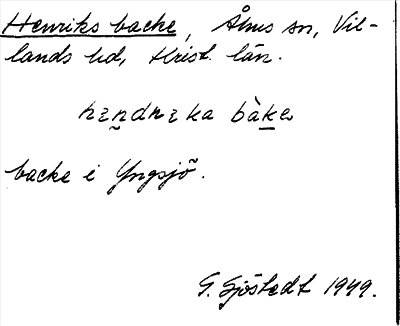 Henriks backe, Åhus sn, Vil-
lands hd, Krist. län.
backe i Yngsjö.
G. Sjöstedt 1949.